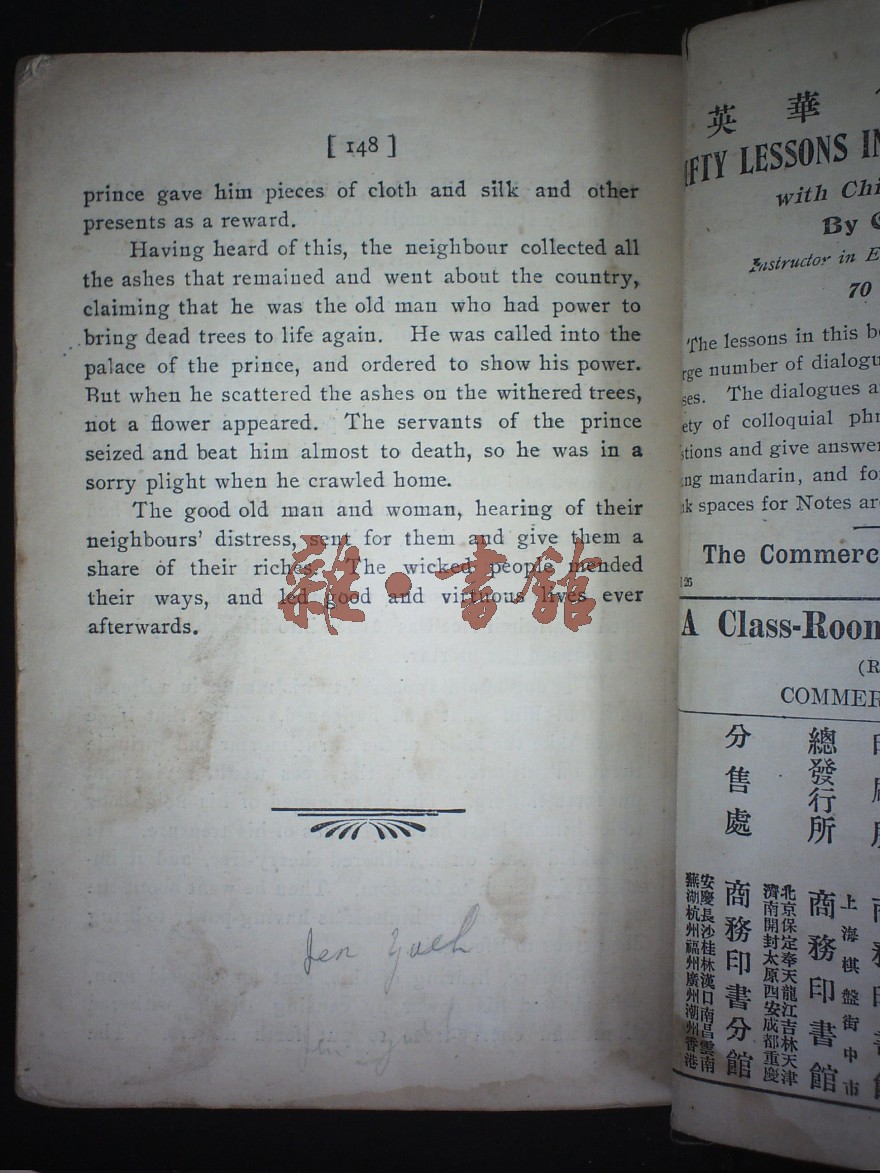 [ 148 ]
prince gave him pieces of cloth and silk and other
presents as a reward.
Having heard of this, the neighbour collected all
the ashes that remained and went about the country,
claiming that he was the old man who had power to
bring dead trees to life again. He was called into the
palace of the prince, and ordered to show his power.
But when he scattered the ashes on the withered trees,
not a flower appeared. The servants of the prince
seized and beat him almost to death, so he was in a
sorry plight when he crawled home.
The good old man and woman, hearing of their
neighbours' distress, sent for them and give them a
share of their riches. The wicked people mended
their ways, and led good and virtuous lives ever
afterwards.
雜·書館
Jen Yueh
英華
FTY LESSONS IN
with Chi
By
Instructor in E
70
The lessons in this b
rge number of dialogu
ses. The dialogues a
ety of colloquial phr
stions and give answe
ng mandarin, and fo
k spaces for Notes ar
The Commerc
126
A Class-Room
(R
COMMER
總發行所
上海棋盤街中市
商務印書館
分售處
北京保定奉天龍江吉林天津
濟南開封太原西安成都重慶
商務印書分館
安慶長沙桂林漢口南昌雲南
蕪湖杭州福州廣州潮州香港